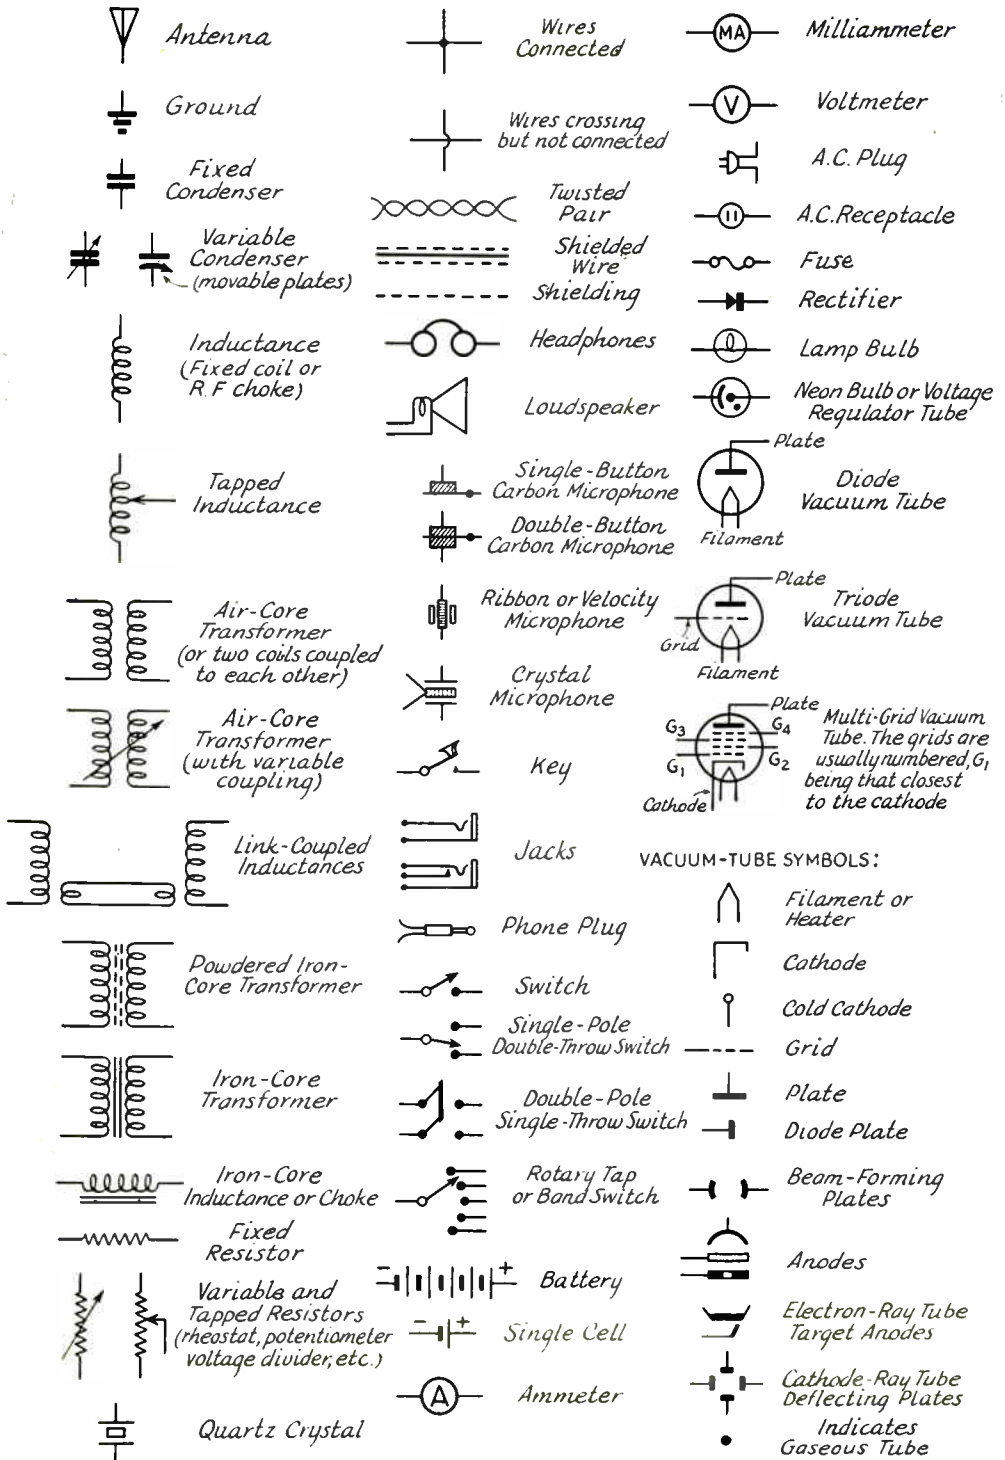 Antenna
Ground
Fixed
Condenser
Variable
Condenser
(movable plates)
Inductance
(Fixed coil or
R.F choke)
Tapped
Inductance
Air-Core
Transformer
(or two coils coupled
to each other)
Air-Core
Transformer
(with variable
coupling)
Link-Coupled
Inductances
Powdered Iron-
Core Transformer
Iron-Core
Transformer
Iron-Core
Inductance or Choke
Fixed
Resistor
Variable and
Tapped Resistors
(rheostat, potentiometer
voltage divider, etc.)
Quartz Crystal
Wires
Connected
Wires crossing
but not connected
Twisted
Pair
Shielded
Wire
Shielding
Headphones
Loudspeaker
Single-Button
Carbon Microphone
Double-Button
Carbon Microphone
Ribbon or Velocity
Microphone
Crystal
Microphone
Key
Jacks
Phone Plug
Switch
Single-Pole
Double-Throw Switch
Double-Pole
Single-Throw Switch
Rotary Tap
or Band Switch
- +
Battery
- +
Single Cell
A
Ammeter
MA
Milliammeter
V
Voltmeter
A.C. Plug
A.C. Receptacle
Fuse
Rectifier
Lamp Bulb
Neon Bulb or Voltage
Regulator Tube
Plate
Diode
Vacuum Tube
Filament
Plate
Triode
Vacuum Tube
Grid
Filament
Plate
G3 G4
G1 G2
Cathode
Multi-Grid Vacuum
Tube. The grids are
usually numbered, G1
being that closest
to the cathode
VACUUM-TUBE SYMBOLS:
Filament or
Heater
Cathode
Cold Cathode
Grid
Plate
Diode Plate
Beam-Forming
Plates
Anodes
Electron-Ray Tube
Target Anodes
Cathode-Ray Tube
Deflecting Plates
Indicates
Gaseous Tube